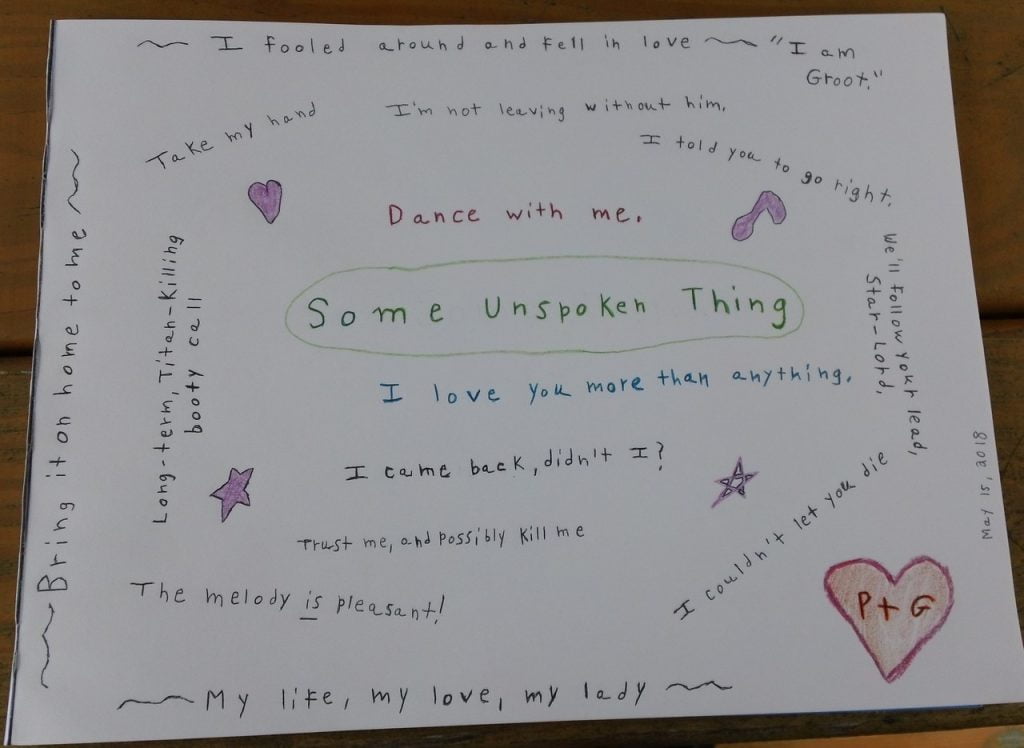 I fooled around and fell in love
"I am
Groot."
Take my hand
I'm not leaving without him.
I told you to go right.
Dance with me.
Some Unspoken Thing
I love you more than anything.
We'll follow your lead,
Star-Lord.
Bring it on home to me
Long-term, Titan-Killing
booty call
I came back, didn't I?
Trust me, and possibly kill me
The melody is pleasant!
I couldn't let you die
May 15, 2018
P + G
My life, my love, my lady